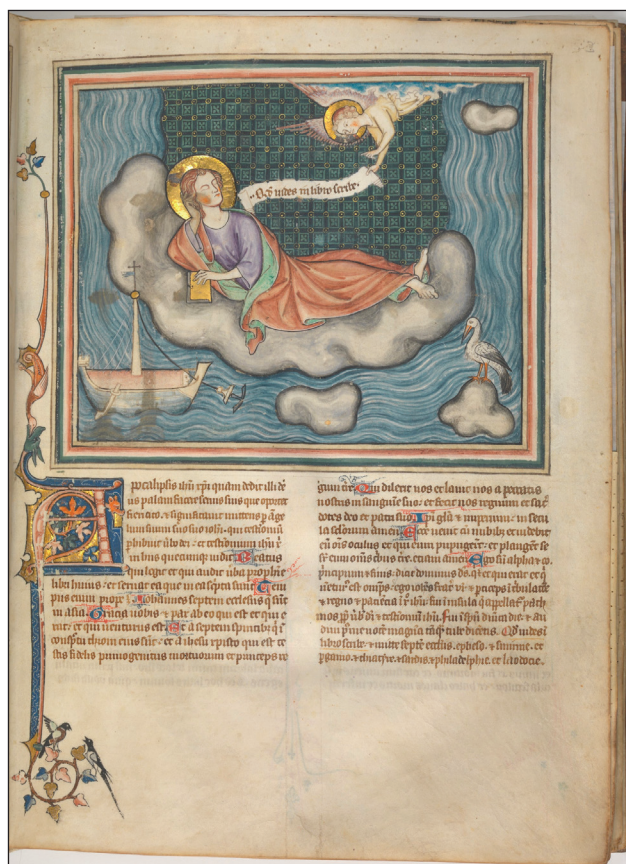 Qd uides in libro scribe.
pocalipsis ihu xpi quam dedit illi de
us palam facere seruis suis que oportet
fieri cito. & significauit mittens p ange
lum suum seruo suo iohi. qui testimoniu
phibuit ubo dei. et testimonium ihu x
in his quecumque uidit. Beatus
qui legit et qui audit uba prophie
libri huius. et seruat ea que in ea scripta sunt. Tem
pus enim prope. Iohannes septem ecclesiis q sunt
in asia. Gracia uobis & pax ab eo qui est et qui e
rat. et qui uenturus est. Et a septem spiritibz q i
conspectu throni eius sunt. et a ihesu cristo qui est te
stis fidelis primogenitus mortuorum et princeps re
gum tre. Qui dilexit nos et lauit nos a peccatis
nostris in sanguine suo. et fecit nos regnum et sac
dotes deo et patri suo. Ipi gla & imperium in secu
la seculorum amen. Ecce uenit cu nubibz et uidebit
eu ois oculus et qui eum pupugerunt. et plangent se
sr eum oms tbus tre. etiam amen. Ego su alpha & o.
principium & finis. dicit dominus ds. qi est qui erat et q
uenturus est omps. ego iohes frat ur & particeps i tbulacoe
& regno & paciecia i x ihu. fui in insula q appellat path
mos pp ubu di & testimoniu ihu. Fui i spu dnica die. & au
diui p me uoce magna taq tube dicentis. Qd uides i
libro scribe. & mitte septe eccliis. epheso. & smirne. et
pgamo. & thiatire. & sardis. & philadelphie. et laodocie.